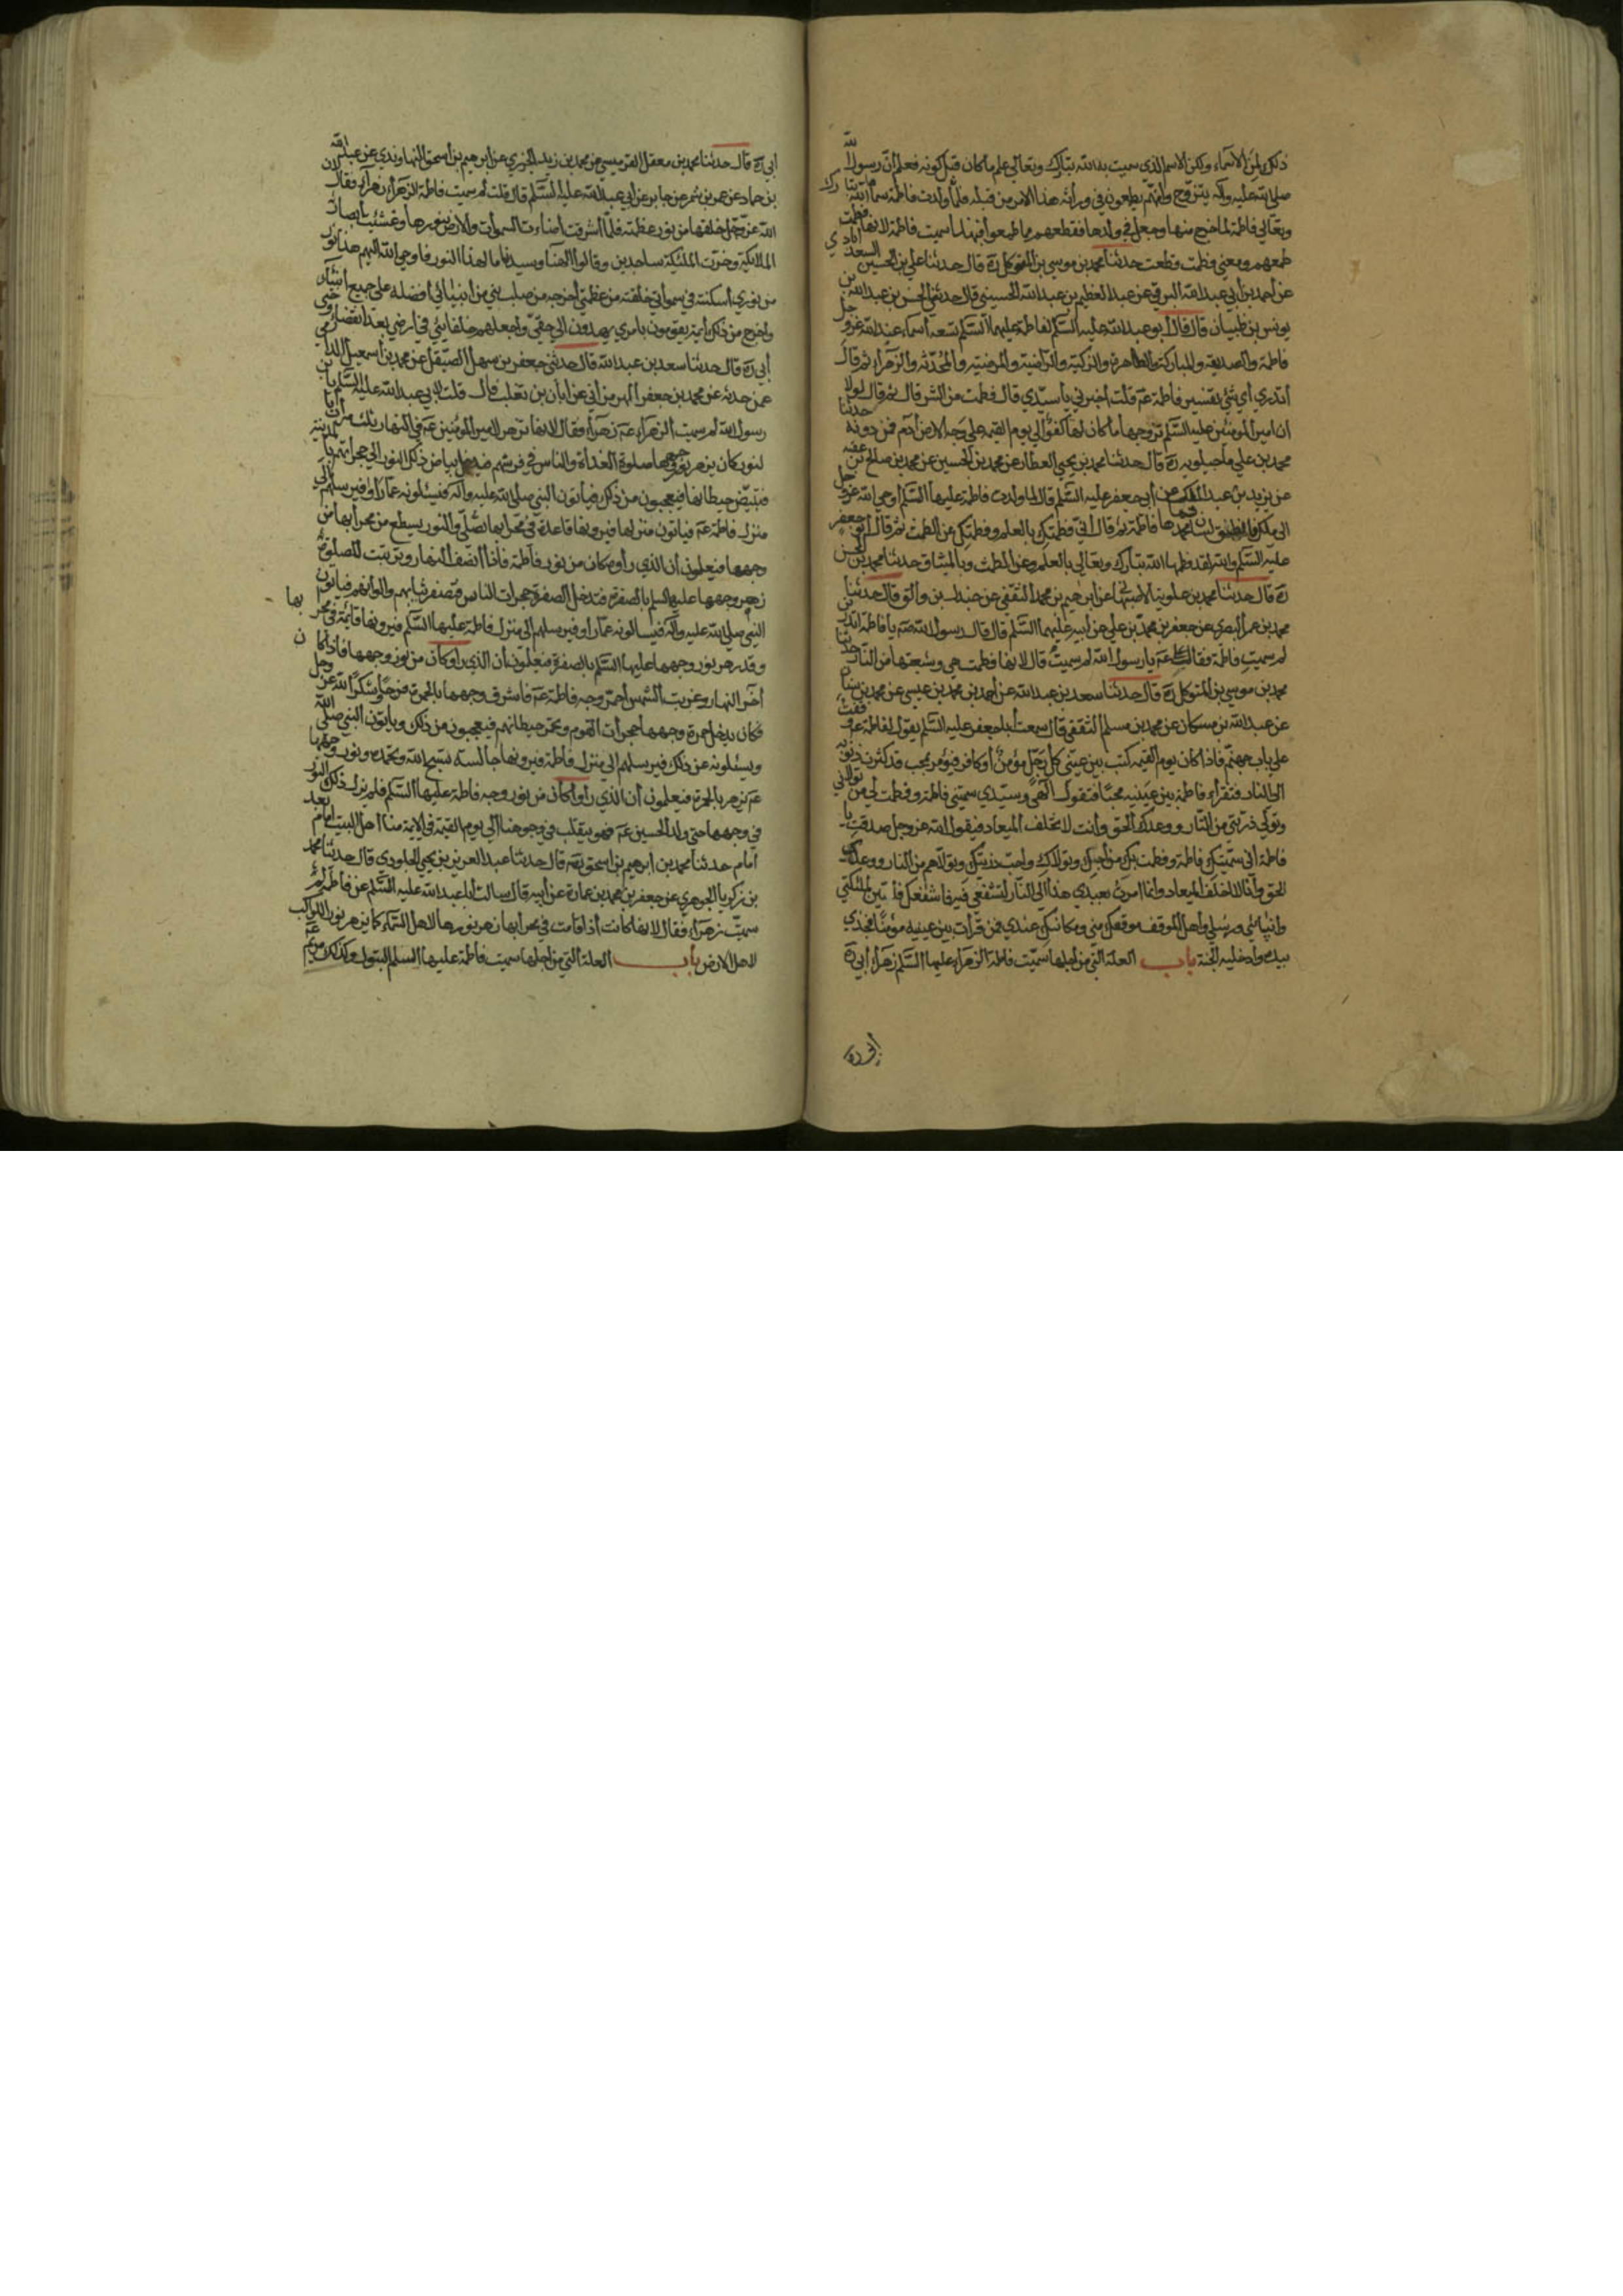 ذلك من الاسماء ولكن الاسم الذى سميت به ان الله تبارك وتعالى علم ما كان قبل كونه فعلم ان رسول الله
صلى الله عليه وآله يتزوج وانهم يطمعون فى وراثة هذا الامر من قبله فلما ولدت فاطمة سماها الله تبارك
وتعالى فاطمة لما اخرج منها وجعل فى ولدها فقطعهم مما طمعوا فبهذا سميت فاطمة لانها فطمت
طمعهم ومعنى فطمت قطعت حدثنا محمد بن موسى بن المتوكل ره قال حدثنا على بن الحسين السعدابادى
عن احمد بن ابى عبد الله البرقى عن عبد العظيم بن عبد الله الحسنى قال حدثنى الحسن بن عبد الله بن
يونس بن ظبيان قال قال ابو عبد الله عليه السلم لفاطمة عليها السلم تسعة اسماء عند الله عز وجل
فاطمة والصديقة والمباركة والطاهرة والزكية والراضية والمرضية والمحدثة والزهراء ثم قال
أتدرى اى شئ تفسير فاطمة عم قلت اخبرنى يا سيدى قال فطمت من الشر قال ثم قال لولا
ان امير المومنين عليه السلم تزوجها ما كان لها كفؤ الى يوم القيمة على وجه الارض آدم فمن دونه حدثنا
محمد بن على ماجيلويه ره قال حدثنا محمد بن يحيى العطار عن محمد بن الحسين عن محمد بن صالح بن عقبه
عن يزيد بن عبد الملك عن ابى جعفر عليه السلم قال لما ولدت فاطمة عليها السلم اوحى الله عز وجل
الى ملك فانطق به لسان محمد فسماها فاطمة ثم قال انى فطمتك بالعلم وفطمتك عن الطمث ثم قال ابو جعفر
عليه السلم والله لقد فطمها الله تبارك وتعالى بالعلم وعن الطمث وبالميثاق حدثنا محمد بن الحسن
ره قال حدثنا محمد بن علوية الاصبهانى عن ابرهيم بن محمد الثقفى عن جندل بن والق قال حدثنا
محمد بن عمر البصرى عن جعفر بن محمد بن على عن ابيه عليهما السلم قال قال رسول الله صم يا فاطمة اتدرين
لم سميت فاطمة فقال على عم يا رسول الله لم سميت قال لانها فطمت هى وشيعتها من النار حدثنا
محمد بن موسى بن المتوكل ره قال حدثنا سعد بن عبد الله عن احمد بن محمد بن عيسى عن محمد بن سنان
عن عبد الله بن مسكان عن محمد بن مسلم الثقفى قال سمعت ابا جعفر عليه السلم يقول لفاطمة عم وقفة
على باب جهنم فاذا كان يوم القيمة كتب بين عينى كل رجل مؤمن او كافر فيؤمر بمحب قد كثرت ذنوبه
الى النار فتقراء فاطمة بين عينيه محبا فتقول الهى وسيدى سميتنى فاطمة وفطمت بى من تولانى
وتولى ذريتى من النار ووعدك الحق وانت لا تخلف الميعاد فيقول الله عز وجل صدقت يا
فاطمة انى سميتك فاطمة وفطمت بك من احبك وتولاك واحب ذريتك وتولاهم من النار ووعدى
الحق وانا لا اخلف الميعاد وانما امرت بعبدى هذا الى النار لتشفعى فيه فاشفعك فليتبين لملئكتى
وانبيائى ورسلى واهل الموقف موقفك منى ومكانتك عندى فمن قرات بين عينيه مؤمنا فخذى
بيده وادخليه الجنة باب العلة التى من اجلها سميت فاطمة الزهراء عليها السلم زهراء ابى ره
ابى ره
ابى ره قال حدثنا محمد بن معقل القرميسى عن محمد بن زيد الجزرى عن ابرهيم بن اسحق النهاوندى عن عبد الله
بن حماد عن عمرو بن شمر عن جابر عن ابى عبد الله عليه السلم قال قلت لم سميت فاطمة الزهراء زهراء فقال لان
الله عز وجل خلقها من نور عظمته فلما اشرقت اضاءت السموات والارض بنورها وغشيت ابصار
الملائكة وخرت الملئكة ساجدين وقالوا الهنا وسيدنا ما لهذا النور فاوحى الله اليهم هذا نور
من نورى اسكنته فى سمواتى خلقته من عظمتى اخرجه من صلب نبى من انبيائى افضله على جميع انبيائى
واخرج من ذلك ائمة يقومون بامرى يهدون الى حقى واجعلهم خلفايئى فى ارضى بعد انقضاء وحيى
ابى ره قال حدثنا سعد بن عبد الله قال حدثنى جعفر بن سهل الصيقل عن محمد بن اسمعيل الدارمى
عمن حدثه عن محمد بن جعفر الهرمزانى عن ابان بن تغلب قال قلت لابى عبد الله عليه السلم يا بن
رسول الله لم سميت الزهراء عم زهراء فقال لانها تزهر لامير المؤمنين عم فى النهار ثلث مرات بالنور
كان يزهر نور وجهها صلوة الغداة والناس فى فرشهم فيدخل بياض ذلك النور الى حجراتهم بالمدينة
فتبيض حيطانها فيعجبون من ذلك فياتون النبى صلى الله عليه وآله فيسئلونه عما راوا فيرسلهم الى
منزل فاطمة عم فياتون منزلها فيرونها قاعدة فى محرابها تصلى والنور يسطع من محرابها من
وجهها فيعلمون ان الذى راوه كان من نور فاطمة فاذا انتصف النهار وترتبت للصلوة
زهر وجهها عليها السلم بالصفرة فتدخل الصفرة حجرات الناس فتصفر ثيابهم والوانهم فياتون
النبى صلى الله عليه وآله فيسالونه عما راوا فيرسلهم الى منزل فاطمة عليها السلم فيرونها قائمة فى محرابها
وقد زهر نور وجهها عليها السلم بالصفرة فيعلمون ان الذى راوا كان من نور وجهها فاذا كان
آخر النهار وغربت الشمس احمر وجه فاطمة عم فاشرق وجهها بالحمرة فرحا وشكرا لله عز وجل
فكان يدخل حمرة وجهها حجرات القوم وتحمر حيطانهم فيعجبون من ذلك وياتون النبى صلى الله
ويسئلونه عن ذلك فيرسلهم الى منزل فاطمة فيرونها جالسة تسبح الله وتحمده ونور وجهها
عم يزهر بالحمرة فيعلمون ان الذى راوا كان من نور وجه فاطمة عليها السلم فلم يزل ذلك النور
فى وجهها حتى ولد الحسين عم فهو يتقلب فى وجوهنا الى يوم القيمة فى الائمة منا اهل البيت امام بعد
امام حدثنا محمد بن ابرهيم بن اسحق ره قال حدثنا عبد العزيز بن يحيى الجلودى قال حدثنا محمد
بن زكريا الجوهرى عن جعفر بن محمد بن عمارة عن ابيه قال سالت ابا عبد الله عليه السلم عن فاطمة لم
سميت زهراء فقال لانها كانت اذا قامت فى محرابها زهر نورها لاهل السماء كما يزهر نور الكواكب
لاهل الارض باب العلة التى من اجلها سميت فاطمة عليها السلم البتول وكذلك مريم عم